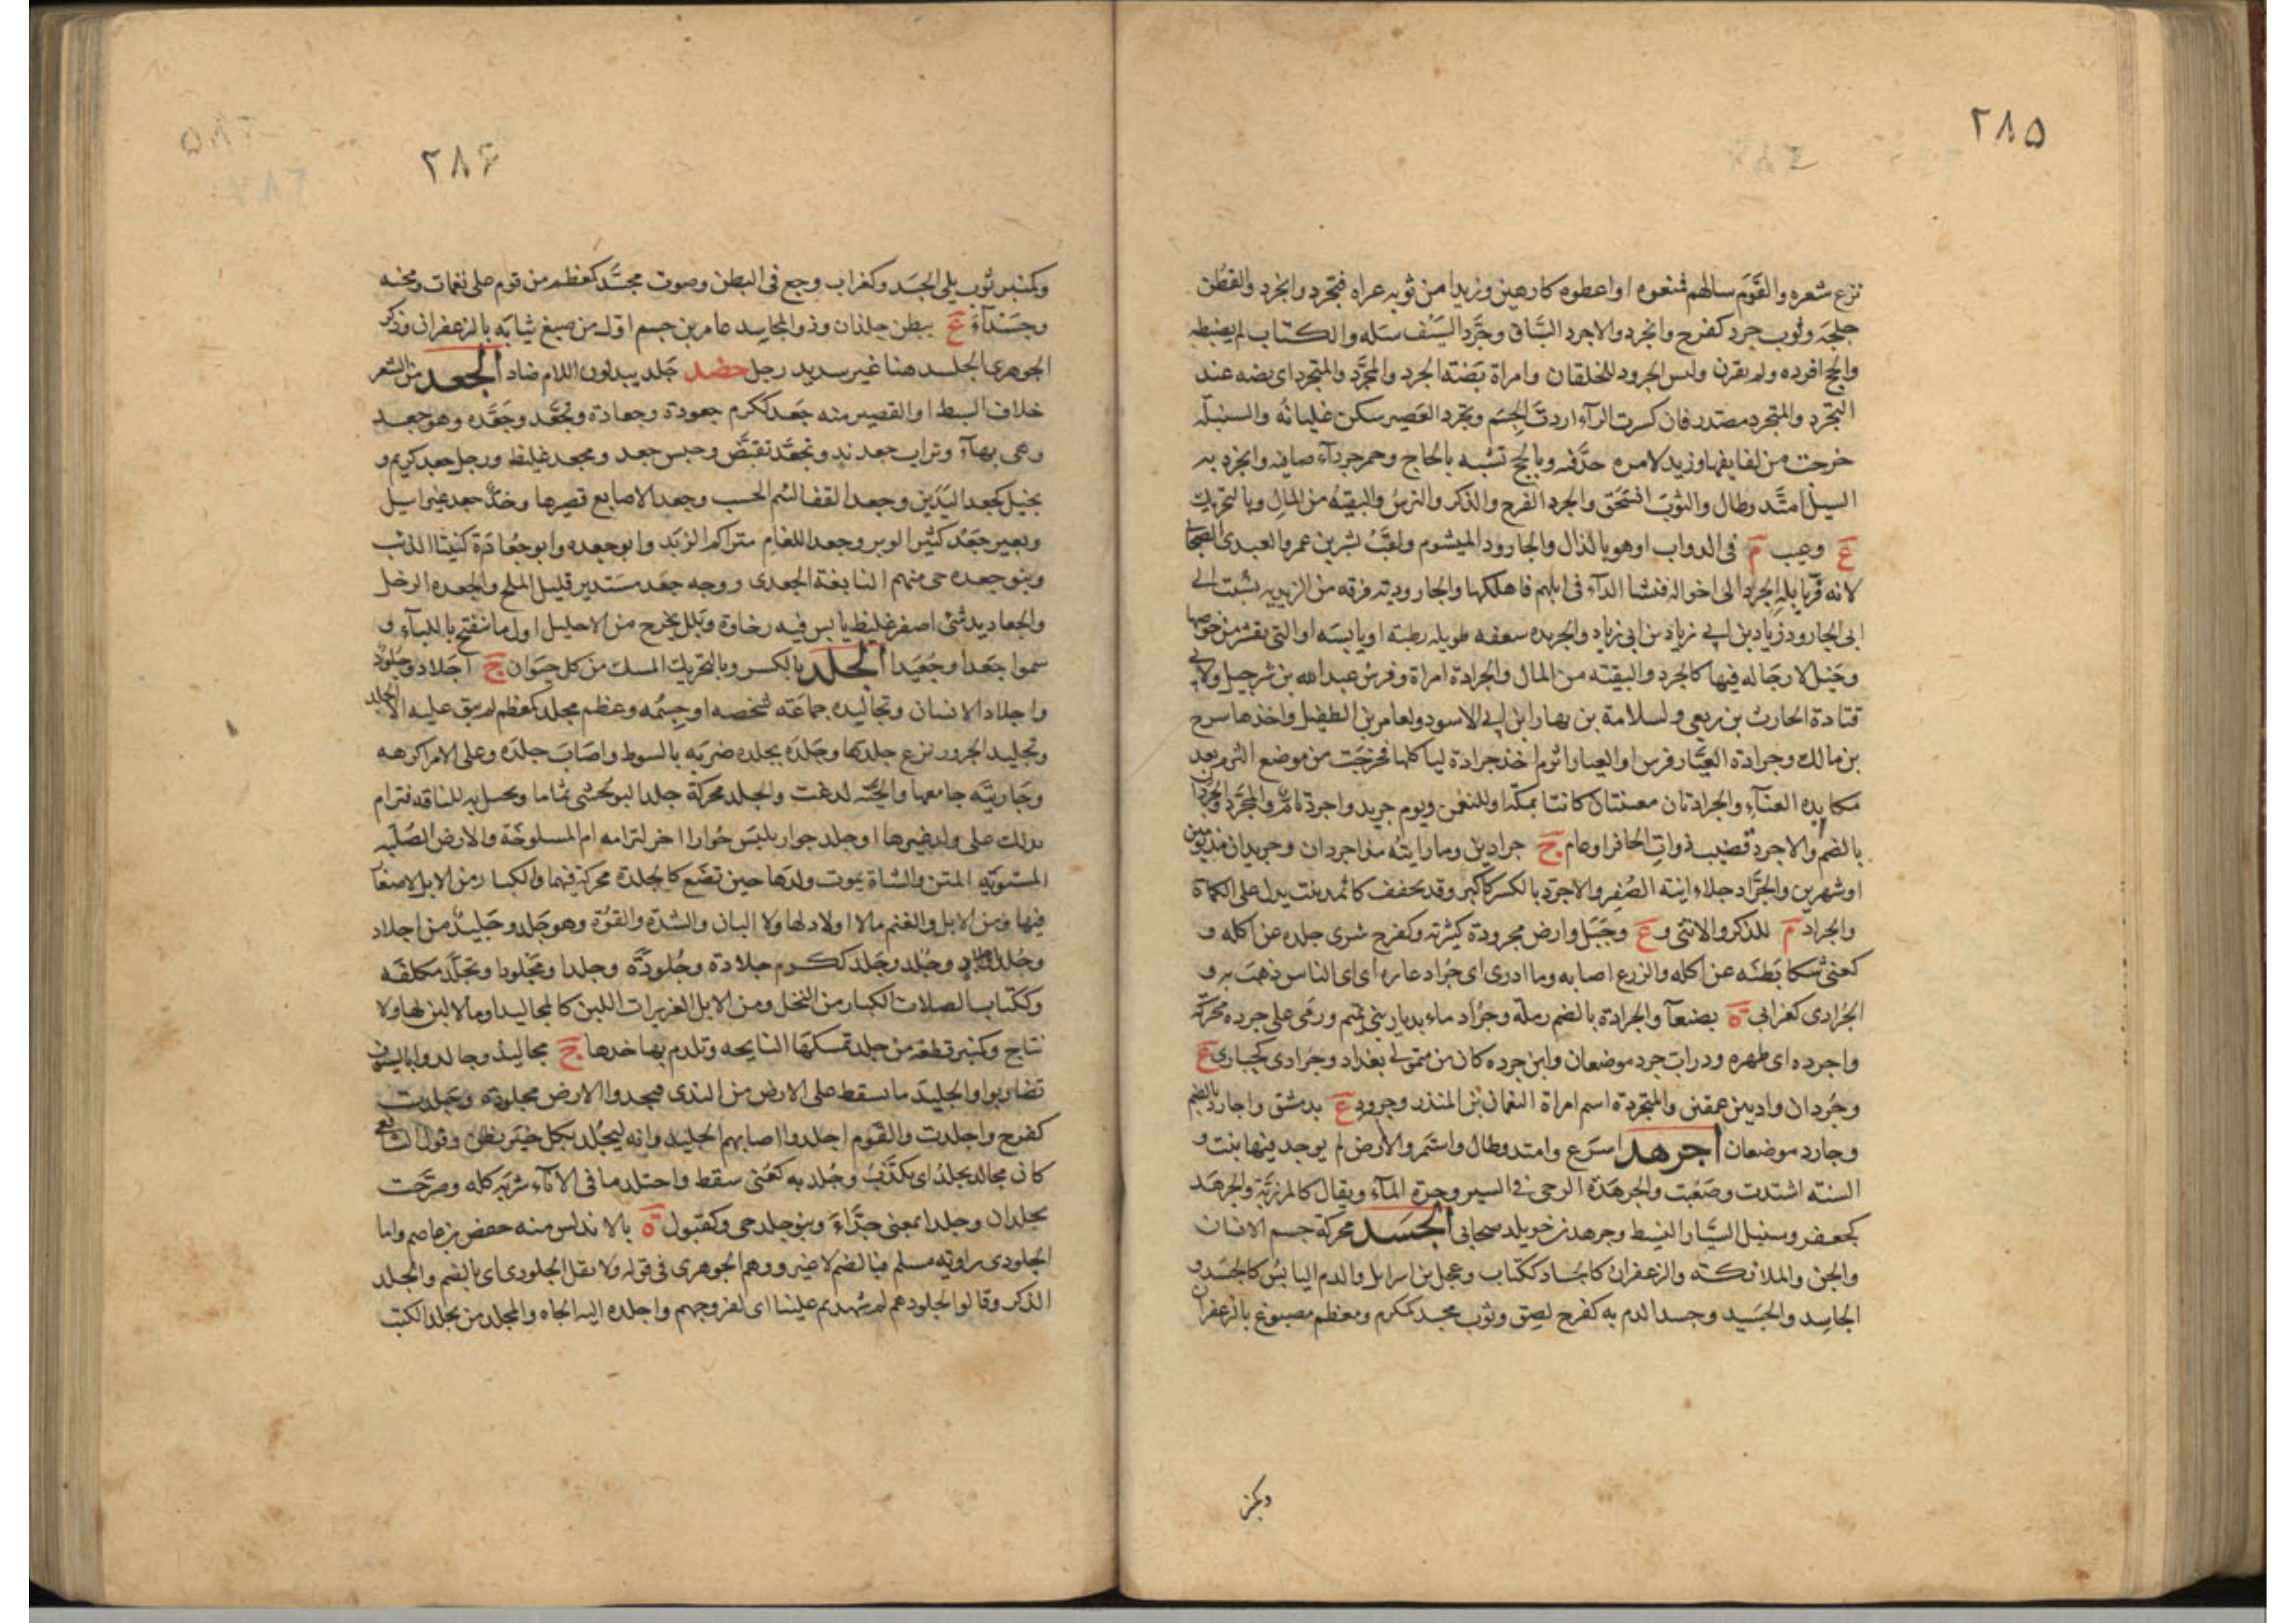 ۲۸۵
نزع شعره والقَوَم سالهم فمنعوه او اعطوه كارهين وزيدا من ثوبه عراه فتجرد وانجرد والقطن
حلجه وثوب جرد كفرح وانجرد والاجرد السَّاق وجَرَّد السَيف سَله والكتاب لم يضبطه
والحج افرده ولم يقرن ولبس الجرود للخلقان وامراة بَضَته الجرد والمجَرَّد والمتجرد اى بضه عند
التجرد والمتجرد مصدر فان كسرت الرآء اردتَ الجِسَم وتجرد العَصير سكن غليانه والسنبلة
خرجت من لفايفها وزيد لامره جدَّ فيه وبالحج تشبه بالحاج وخمر جردآء صافيه وانجرد به
السيلُ امتَّد وطال والثوب انسَحَق والجرد الفرج والذكر والترسُ والبقيةُ من المالِ وبالتحريك
ع وعيب م فى الدواب او هو بالذال والجارود الميشوم ولقبُ بشر بن عمرو العبدى الصحابى
لانه فرّ بابله الجرد الى اخواله ففشا الدآء فى ابلهم فاهلكها والجارودية فرقه من الزيديه نسبت الى
ابى الجارود زياد بن ابى زياد والجريده سعفه طويله رطبة او يابسَه او التى تقشر من خوصها
وخَيل لا رجَاله فيها كالجرد والبقيَته من المال والجرادة امراة وفرس عبد الله بن شرحبيل ولابى
قتادة الحارث بن ربعى ولسلامة بن نهار ابن ابى الاسود ولعامر بن الطفيل واخذها سرح
بن مالك وجرادة العَيَّار فرس او العيار اثرم اخذ جرادة لياكلها فخرجَت من موضع الثرم بعد
مكابده العنآء والجرادتان مغنيتان كانتا بمكة او للنعمن ويوم جريد واجرد تامّ والمجَرَّد والجردان
بالضم والاجردُ قضيب ذواتِ الحافر او عام ج جرادين وما رايته مذ اجردان وجريدان مذ يومين
او شهرين والجَرَّاد جلاء انيته الصُفر والاجردّ بالكسر كاكبر وقد يخفف كاثمد نبت يدل على الكماة
والجراد م للذكر والانثى و ع وجَبَل وارض مجرودة كثيرته وكفرح شرى جلده عن اكله و
كعنى شكا بَطنَه عن اكله والزرع اصابه وما ادرى اى جُراد عاره اى اى الناس ذهبَ به و
الجُرادى كغرابى ة بصنعآ والجرادة بالضم رملة وجُراد ماء بديار بنى تميم ورمى على جرده محركة
واجرده اى ظهره ودراب جرد موضعان وابن جرده كان من متمولى بغداد وجُرادى كحبارى ع
وجُردان واد بين عمقين والمتجردة اسم امراة النعمان بن المنذر وجرود ع بدمشق واجارد بالضم
وجارد موضعان اجرهد اسرَع وامتد وطال واستمر والارض لم يوجد فيها نبت و
السنة اشتدت وصَعُبت والجرهَدة الوحى فى السير وجرة المآء ويقال كالمرزبّة والجرهَد
كجعفر وسنبل السَيَّار النشيط وجرهد بن خويلد صحابى الجَسَد محركة جسم الانسان
والجن والملائكة والزعفران كالجساد ككتاب وعجل بنى اسرايل والدم اليابسُ كالجَسَد و
الجاسِد والجَسيد وجسد الدم به كفرح لصِق وثوب مجسد كمكرم ومعظم مصبوغ بالزعفران
وكمنبر
۲۸۶
وكمنبر ثوب يلى الجَسَد وكغراب وجع فى البطن وصوت مجسَّد كمعظم من قوم على نغمات ومحنه
وجَسَدآءَ ع ببطن جلذان وذو المجاسِد عامر بن جسم اول من صبغ ثيابَه بالزعفران وذكر
الجوهرى الجلسد هنا غير سديد رجل جضد جَلد يبدلون اللام ضاد الجعد من الشعر
خلاف السبط او القصير منه جَعد ككرم جعودة وجعادة وتجَعَّد وجَعَّده وهو جعد
وهى بهآء وتراب جعد ندٍ وتجعَّد تقبَّض وحيس جعد ومجعد غليظ ورجل جعد كريم و
بخيل كجعد اليَدَين وجعد القفا لئيم الحسب وجعد الاصابع قصيرها وخدّ جعد غير اسيل
وبعير جَعَد كثير الوبر وجعد اللغام متراكم الزبَد وابو جعده وابو جُعادَة كنيتا الذئب
وبنو جعده حى منهم النابغة الجعدى ووجه جعَد مستدير قليل الملح والجعده الرخل
والجعاديد شئ اصفر غليظ يابس فيه رخاوة وبَلل يخرج من الاحليل اول ما ينفتح باللباء و
سموا جَعدا وجُعَيدا الجلد بالكسر وبالتحريك المسك من كل حيوان ج اجلاد وجُلودٌ
واجلاد الانسان وتجاليده جماعَة شخصه او جِسمه وعظم مجلد كمعظم لم يبق عليه الا الجلد
وتجليد الجزور نزع جلدها وجَلدَه يجلده ضربَه بالسوط واصَابَ جلدَه وعلى الامر اكرهه
وجَاريَته جامعها والحيّه لدغت والجلد محركة جلد البو يُحشى ثماما ويخيل به للناقه فترام
بذلك على ولد غيرها او جلد حوار يلبَس حُوارا اخر لترامه ام المسلوخة والارض الصُلبه
المستويَة المتن والشاة يموت ولدها حين تضَع كالجلدة محركة فيهما والكبار من الابل لا صغار
فيها ومن الابل والغنم ما لا اولاد لها ولا البان والشدّة والقوُّة وهو جَلد وجَليدٌ من اجلاد
وجُلداء وجُلد وجَلد ككرم جلادة وجُلودَة وجلدا ومَجلودا وتجَلَّد تكلفَه
وككتاب الصلاب الكبار من النخل ومن الابل الغزيرات اللبن كالمجاليد او ما لا لبن لها ولا
نتاج وكمنبر قطعة من جلد تمسكهَا النايحه وتلدم بها خدها ج مجاليدُ وجالدوا بالسيوف
تضاربوا والجليدَ ما يسقط على الارض من الندى فيجمد والارض مجلودة وجَلِدت
كفرح واجلدت والقَوم اجلدوا اصابهم الجليد وانه ليُجلد بكل خَيرٍ يظن وقول الشافعى
كان مجالد يجلدُ اى يكذَّب وجُلد به كعُنى سقط واجتلد ما فى الاناء شربَه كله وصَرَّحَت
بجلدان وجلداء بمعنى جدَّاءَ وبنو جلد حى وكقبول ة بالاندلس منه حفص بن عاصم واما
الجلودى راويَه مسلم فبالضم لا غير ووهم الجوهرى فى قوله ولا تقل الجلودى اى بالضم والجلد
الذكر وقالوا لجلودهم لم شهدتم علينا اى لفروجهم واجلده اليه الجاه والمجلد من يجلد الكتب